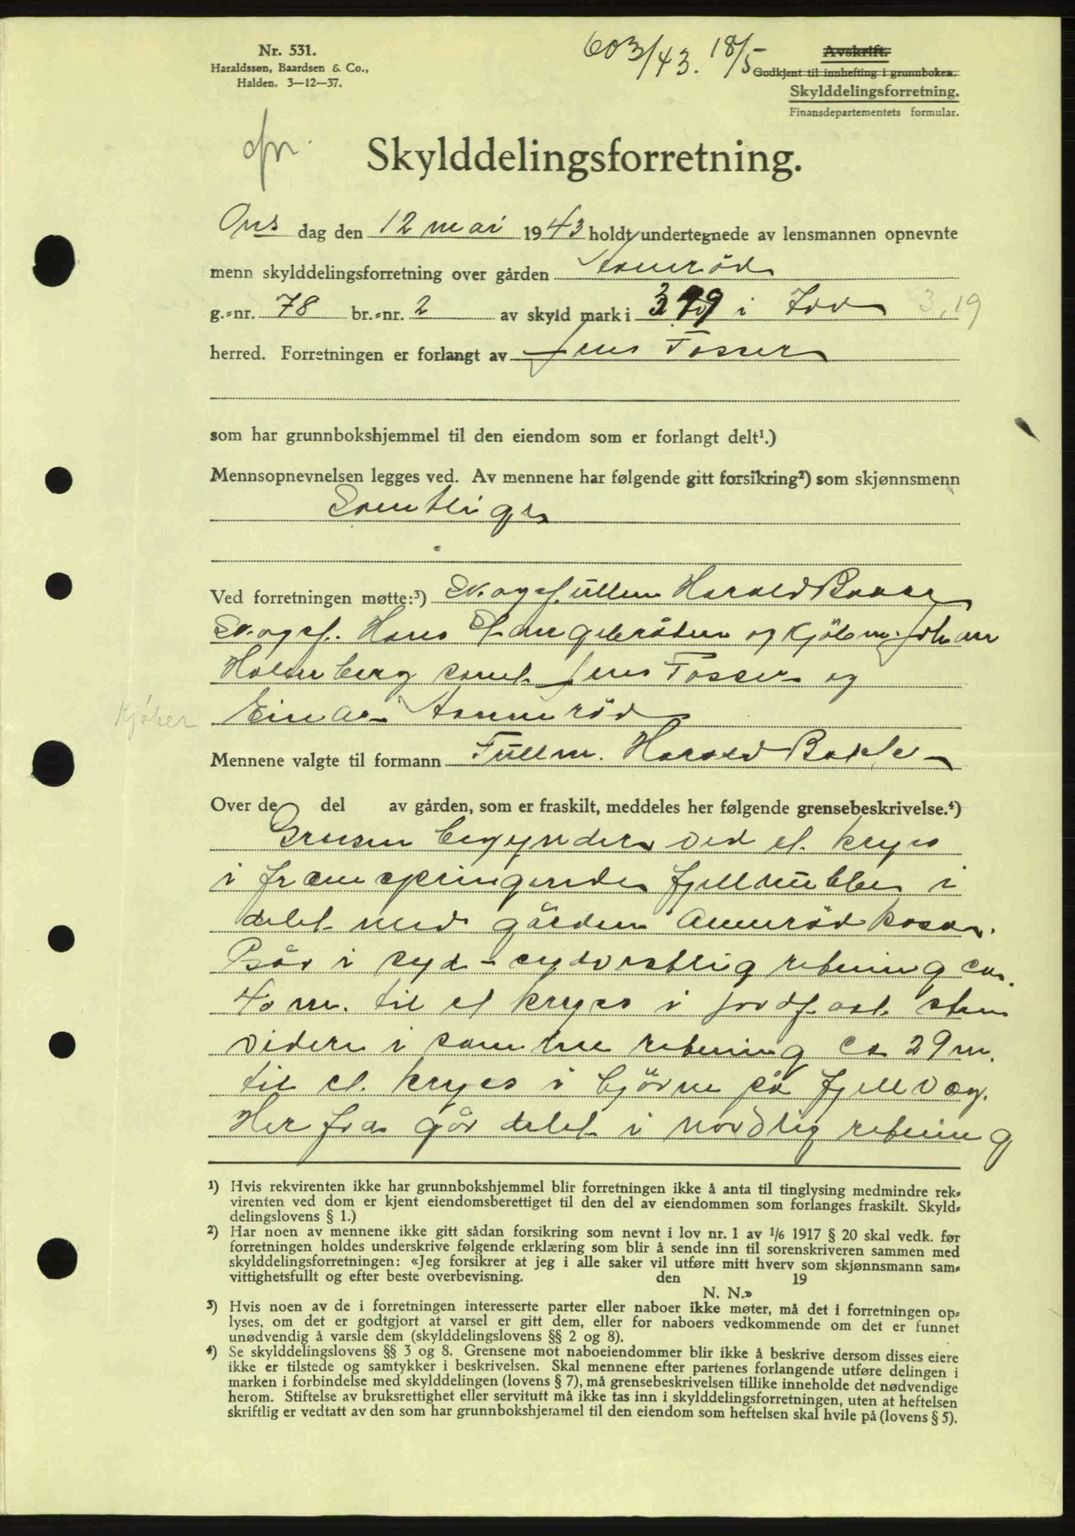 Nr. 531.
Haraldssøn, Baardsen & Co.,
Halden. 3—12—37.
603/43. 18/5
Avskrift.
Godkjent til innhefting i grunnboken.
Skylddelingsforretning.
Finansdepartementets formular.
Skylddelingsforretning.
Ons dag den 12 mai 1943 holdt undertegnede av lensmannen opnevnte
menn skylddelingsforretning over gården
g.-nr. 78 br.-nr. 2 av skyld mark i 3 19 i Idd 3,19
herred. Forretningen er forlangt av Jens Fosser
som har grunnbokshjemmel til den eiendom som er forlangt delt¹.)
Mennsopnevnelsen legges ved. Av mennene har følgende gitt forsikring²) som skjønnsmenn
Samtlige
Ved forretningen møtte:³) Skogsf.üllm Harald Bakke
Skogsf. Hans og Kjöbm. Johan
Holmberg samt Jens Fosser og
Kjøber Einar
Mennene valgte til formann Füllm. Harald Bakke
Over de del av gården, som er fraskilt, meddeles her følgende grensebeskrivelse.⁴)
Grensen begynder ved et kryss
i fremspringende fjellnübbe i
delet med gården
i syd-sydvestlig retning ca.
40 m. til et kryss i jordfast sten
videre i samme retning ca 29 m.
til et kryss i hjörne på fjellvæg.
Her fra går delet i nordlig retning
¹) Hvis rekvirenten ikke har grunnbokshjemmel blir forretningen ikke å anta til tinglysing medmindre rek-
virenten ved dom er kjent eiendomsberettiget til den del av eiendommen som forlanges fraskilt. Skyld-
delingslovens § 1.)
²) Har noen av mennene ikke gitt sådan forsikring som nevnt i lov nr. 1 av 1/6 1917 § 20 skal vedk. før
forretningen holdes underskrive følgende erklæring som blir å sende inn til sorenskriveren sammen med
skylddelingsforretningen: «Jeg forsikrer at jeg i alle saker vil utføre mitt hverv som skjønnsmann sam-
vittighetsfullt og efter beste overbevisning. den 19
N. N.»
³) Hvis noen av de i forretningen interesserte parter eller naboer ikke møter, må det i forretningen op-
lyses, om det er godtgjort at varsel er gitt dem, eller for naboers vedkommende om det er funnet
unødvendig å varsle dem (skylddelingslovens §§ 2 og 8).
⁴) Se skylddelingslovens §§ 3 og 8. Grensene mot naboeiendommer blir ikke å beskrive dersom disses eiere
ikke er tilstede og samtykker i beskrivelsen. Skal mennene efter partenes forlangende utføre delingen i
marken i forbindelse med skylddelingen (lovens § 7), må grensebeskrivelsen tillike inneholde det nødvendige
herom. Stiftelse av bruksrettighet eller servitutt må ikke tas inn i skylddelingsforretningen, uten at heftelsen
skriftlig er vedtatt av den som har grunnbokshjemmel til den eiendom som heftelsen skal hvile på (lovens § 5).